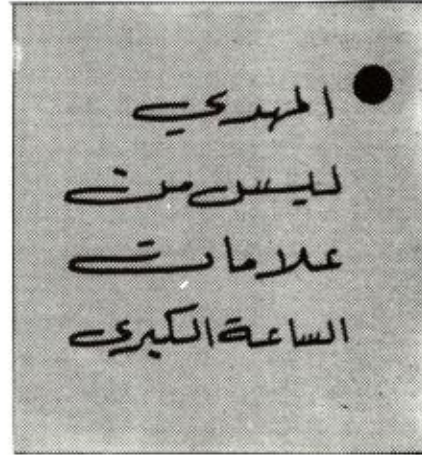 ● المهدي
ليس من
علامات
الساعة الكبرى